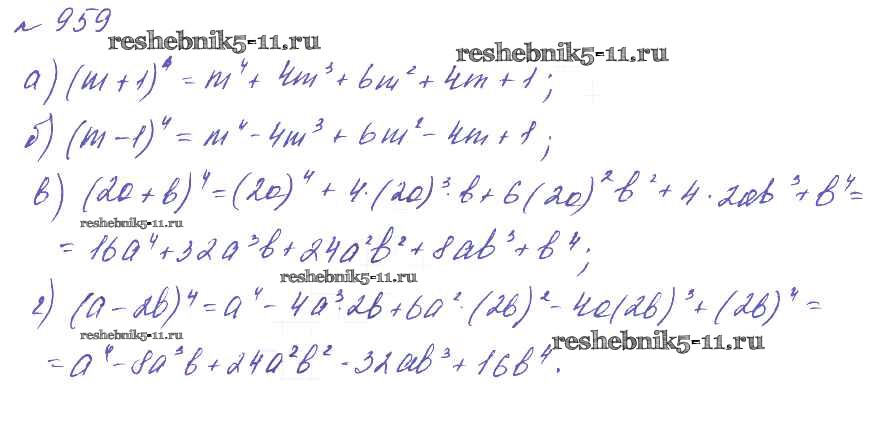 № 959
reshebnik5-11.ru
reshebnik5-11.ru
а) (m+1)⁴ = m⁴ + 4m³ + 6m² + 4m + 1;
б) (m-1)⁴ = m⁴ - 4m³ + 6m² - 4m + 1;
в) (2a+b)⁴ = (2a)⁴ + 4·(2a)³·b + 6(2a)²b² + 4·2ab³ + b⁴ =
reshebnik5-11.ru
= 16a⁴ + 32a³b + 24a²b² + 8ab³ + b⁴;
reshebnik5-11.ru
г) (a-2b)⁴ = a⁴ - 4a³·2b + 6a²·(2b)² - 4a(2b)³ + (2b)⁴ =
reshebnik5-11.ru
reshebnik5-11.ru
= a⁴ - 8a³b + 24a²b² - 32ab³ + 16b⁴.